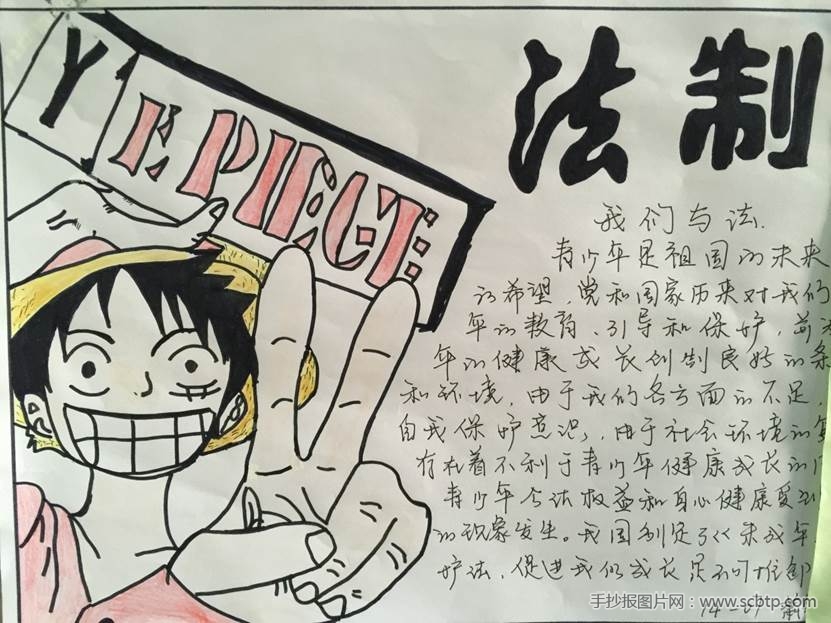 YEPIECE
法制
我们与法.
青少年是祖国的未来
的希望,党和国家历来对我们
年的教育、引导和保护,
年的健康成长创制良好的条
和环境,由于我们各方面的不足,
自我保护意识,由于社会环境的复
存在着不利于青少年健康成长的
青少年合法权益和身心健康受到
的现象发生。我国制定了《未成年
护法,促进我们成长是不可推卸
14-01 制
手抄报图片网:www.scbtp.com